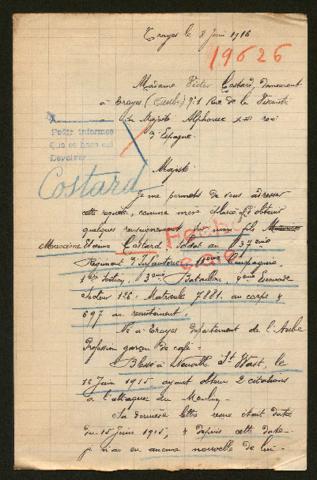 Troyes le 8 Juin 1916
19626
Madame Victor Costard, demeurant
à Troyes (Aube) 91 Rue de la
à Sa Majesté Alphonse XIII roi
d'Espagne.
Pedir informes
que se hace así
Devolver
Costard
Majesté
Je me permets de vous adresser
cette requête, comme mère d'obtenir
quelques renseignements sur mon fils
Maxime Etienne Costard, soldat au 37ème
Régiment d'Infanterie 11ème Compagnie
3ème Bataillon,
secteur 126. Matricule 7881 au corps &
697 au recrutement.
Né à Troyes département de l'Aube
Profession garçon de café.
Blessé à Neuville St Waast, le
Juin 1915 ayant obtenu 2 citations
à l'attaque du Moulin.
Sa dernière lettre reçue était datée
du 15 Juin 1915, & depuis cette date
je n'ai eu aucune nouvelle de lui.